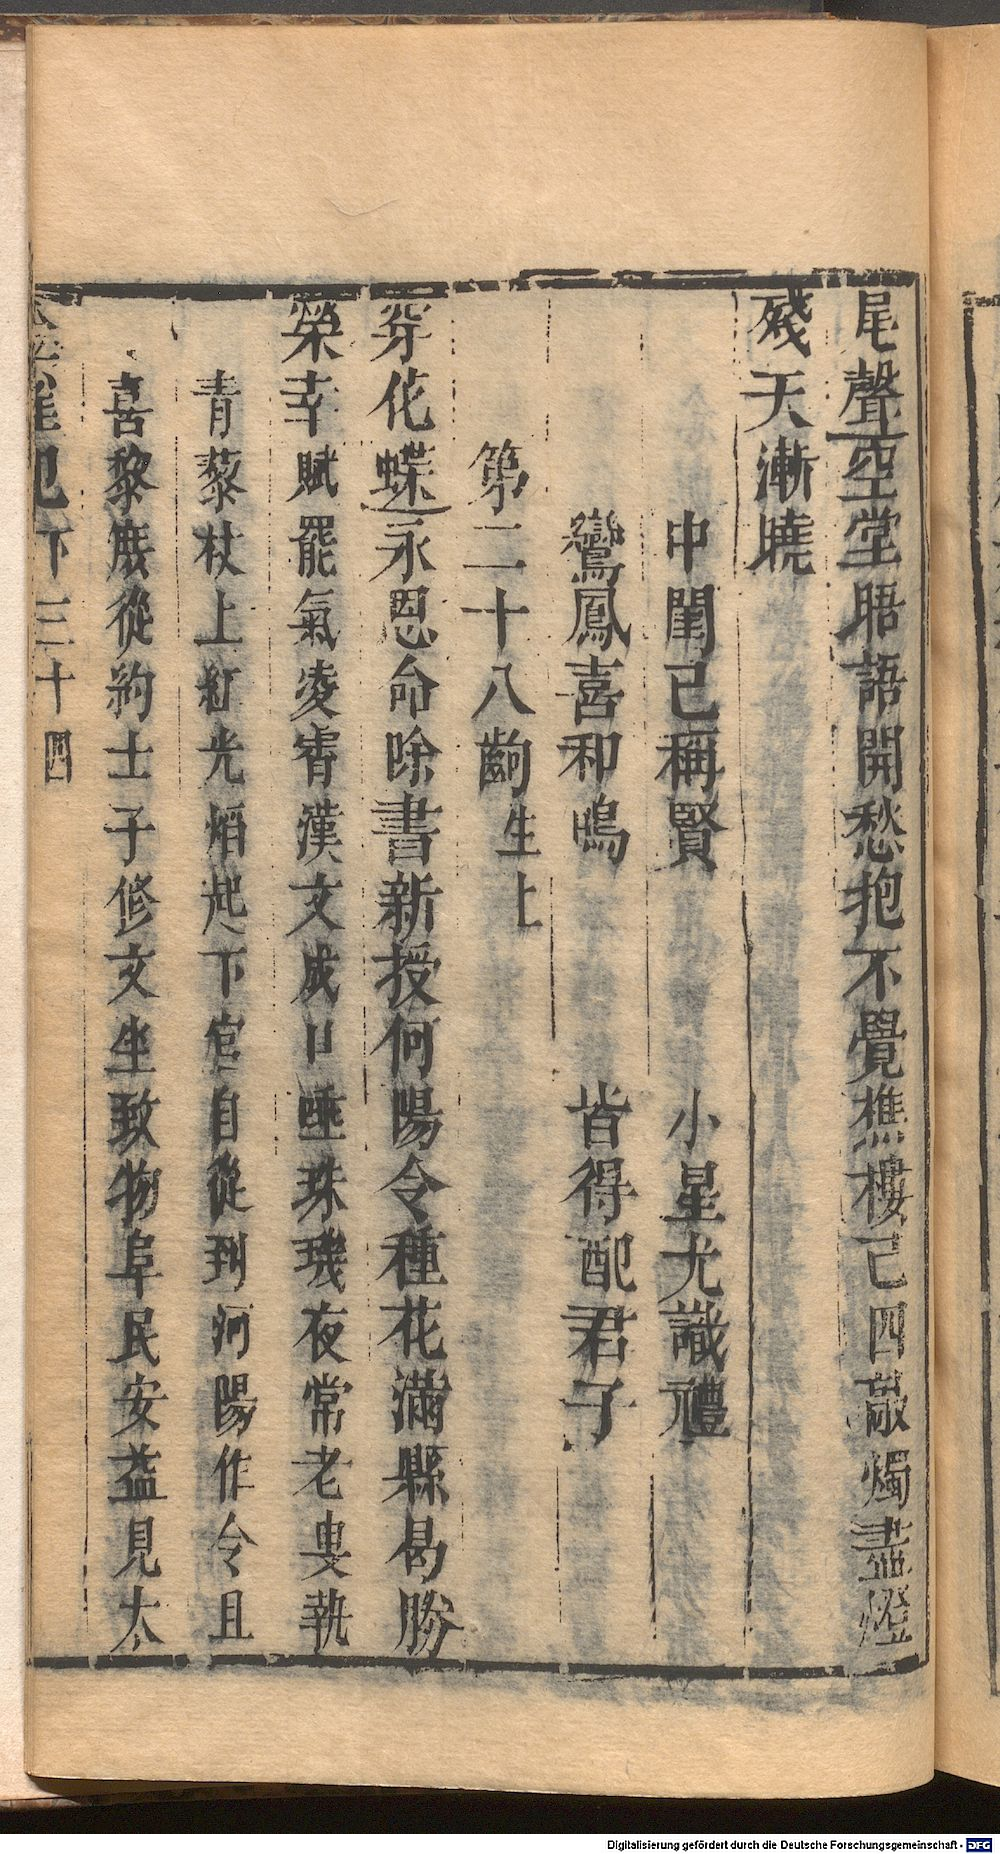 尾聲空堂晤語開愁抱不覺樵樓已四敲燭盡燈
殘天漸曉
中閨已稱賢 小星尤識禮
鸞鳳喜和鳴 皆得配君子
第二十八齣 生上
穿花蝶永恩命除書新授何陽令種花滿縣曷勝
榮幸賦罷氣凌霄漢文成口唾珠璣夜常老叟執
青藜杖上紅光焰起下官自從到河陽作令且
喜黎庶從約士子修文坐致物阜民安益見太
記下 三十四
Digitalisierung gefördert durch die Deutsche Forschungsgemeinschaft - DFG